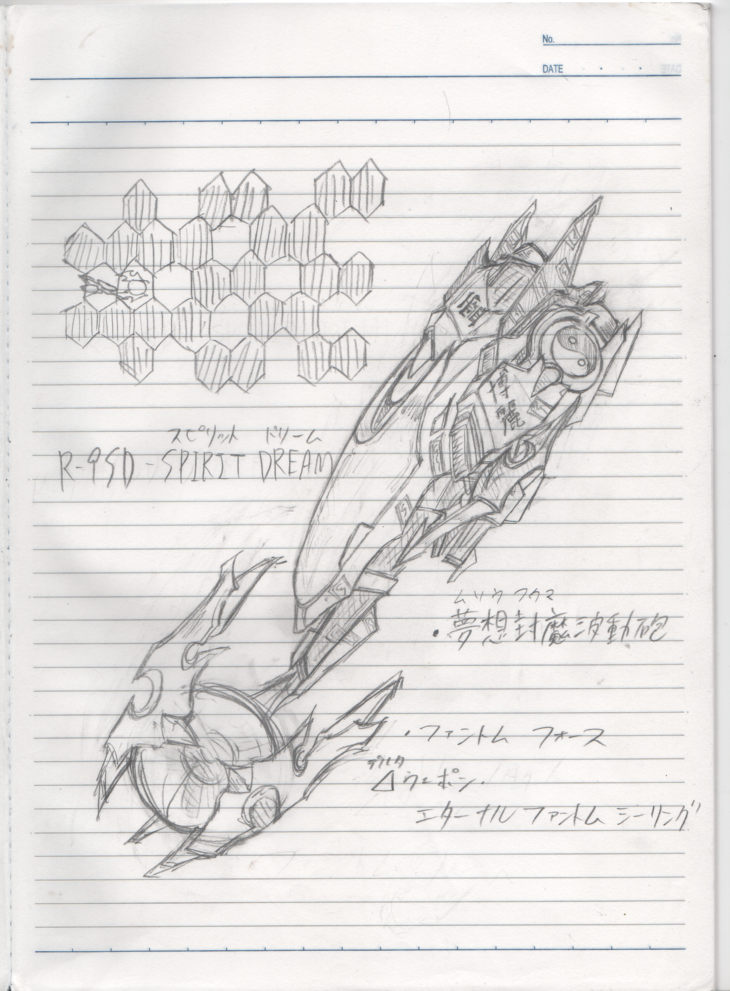 No.
DATE
霊
博麗
スピリット ドリーム
R-9SD-SPIRIT DREAM
ムソウフウマ
・夢想封魔波動砲
・ファントム フォース
デルタ
△ウェポン.
エターナルファントムシーリング